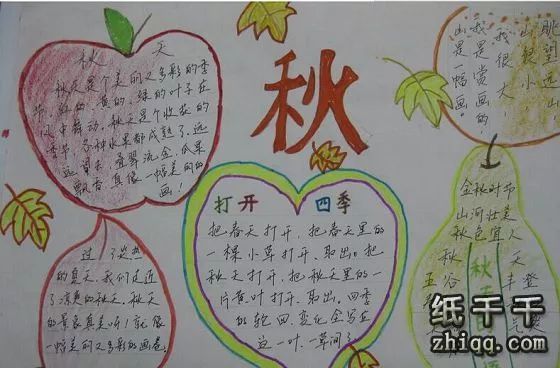 秋天
秋天是个美丽又多彩的季
节,红的、黄的、绿的叶子在
风中舞动,秋天是个收获的
季节,各种水果都成熟了,远
远望去,叠翠流金,瓜果
飘香,真像一幅美丽的
画!
秋
眺望远山,
山很小,
我很大!
我是赏画的,
山是一幅画。
打开 四季
把春天打开,把春天里的
一棵小草打开、取出。把
秋天打开,把秋天里的一
片黄叶打开、取出。四季
的轮回,变化会写在
这一叶一草间了
过了炎热
的夏天,我们走近
了凉爽的秋天,秋天
的景良真美听!就像
一幅美丽又多彩的画卷。
金秋时节
山河壮美
秋色宜人
秋
五谷丰登
秋天
天
纸千千
zhiqq.com